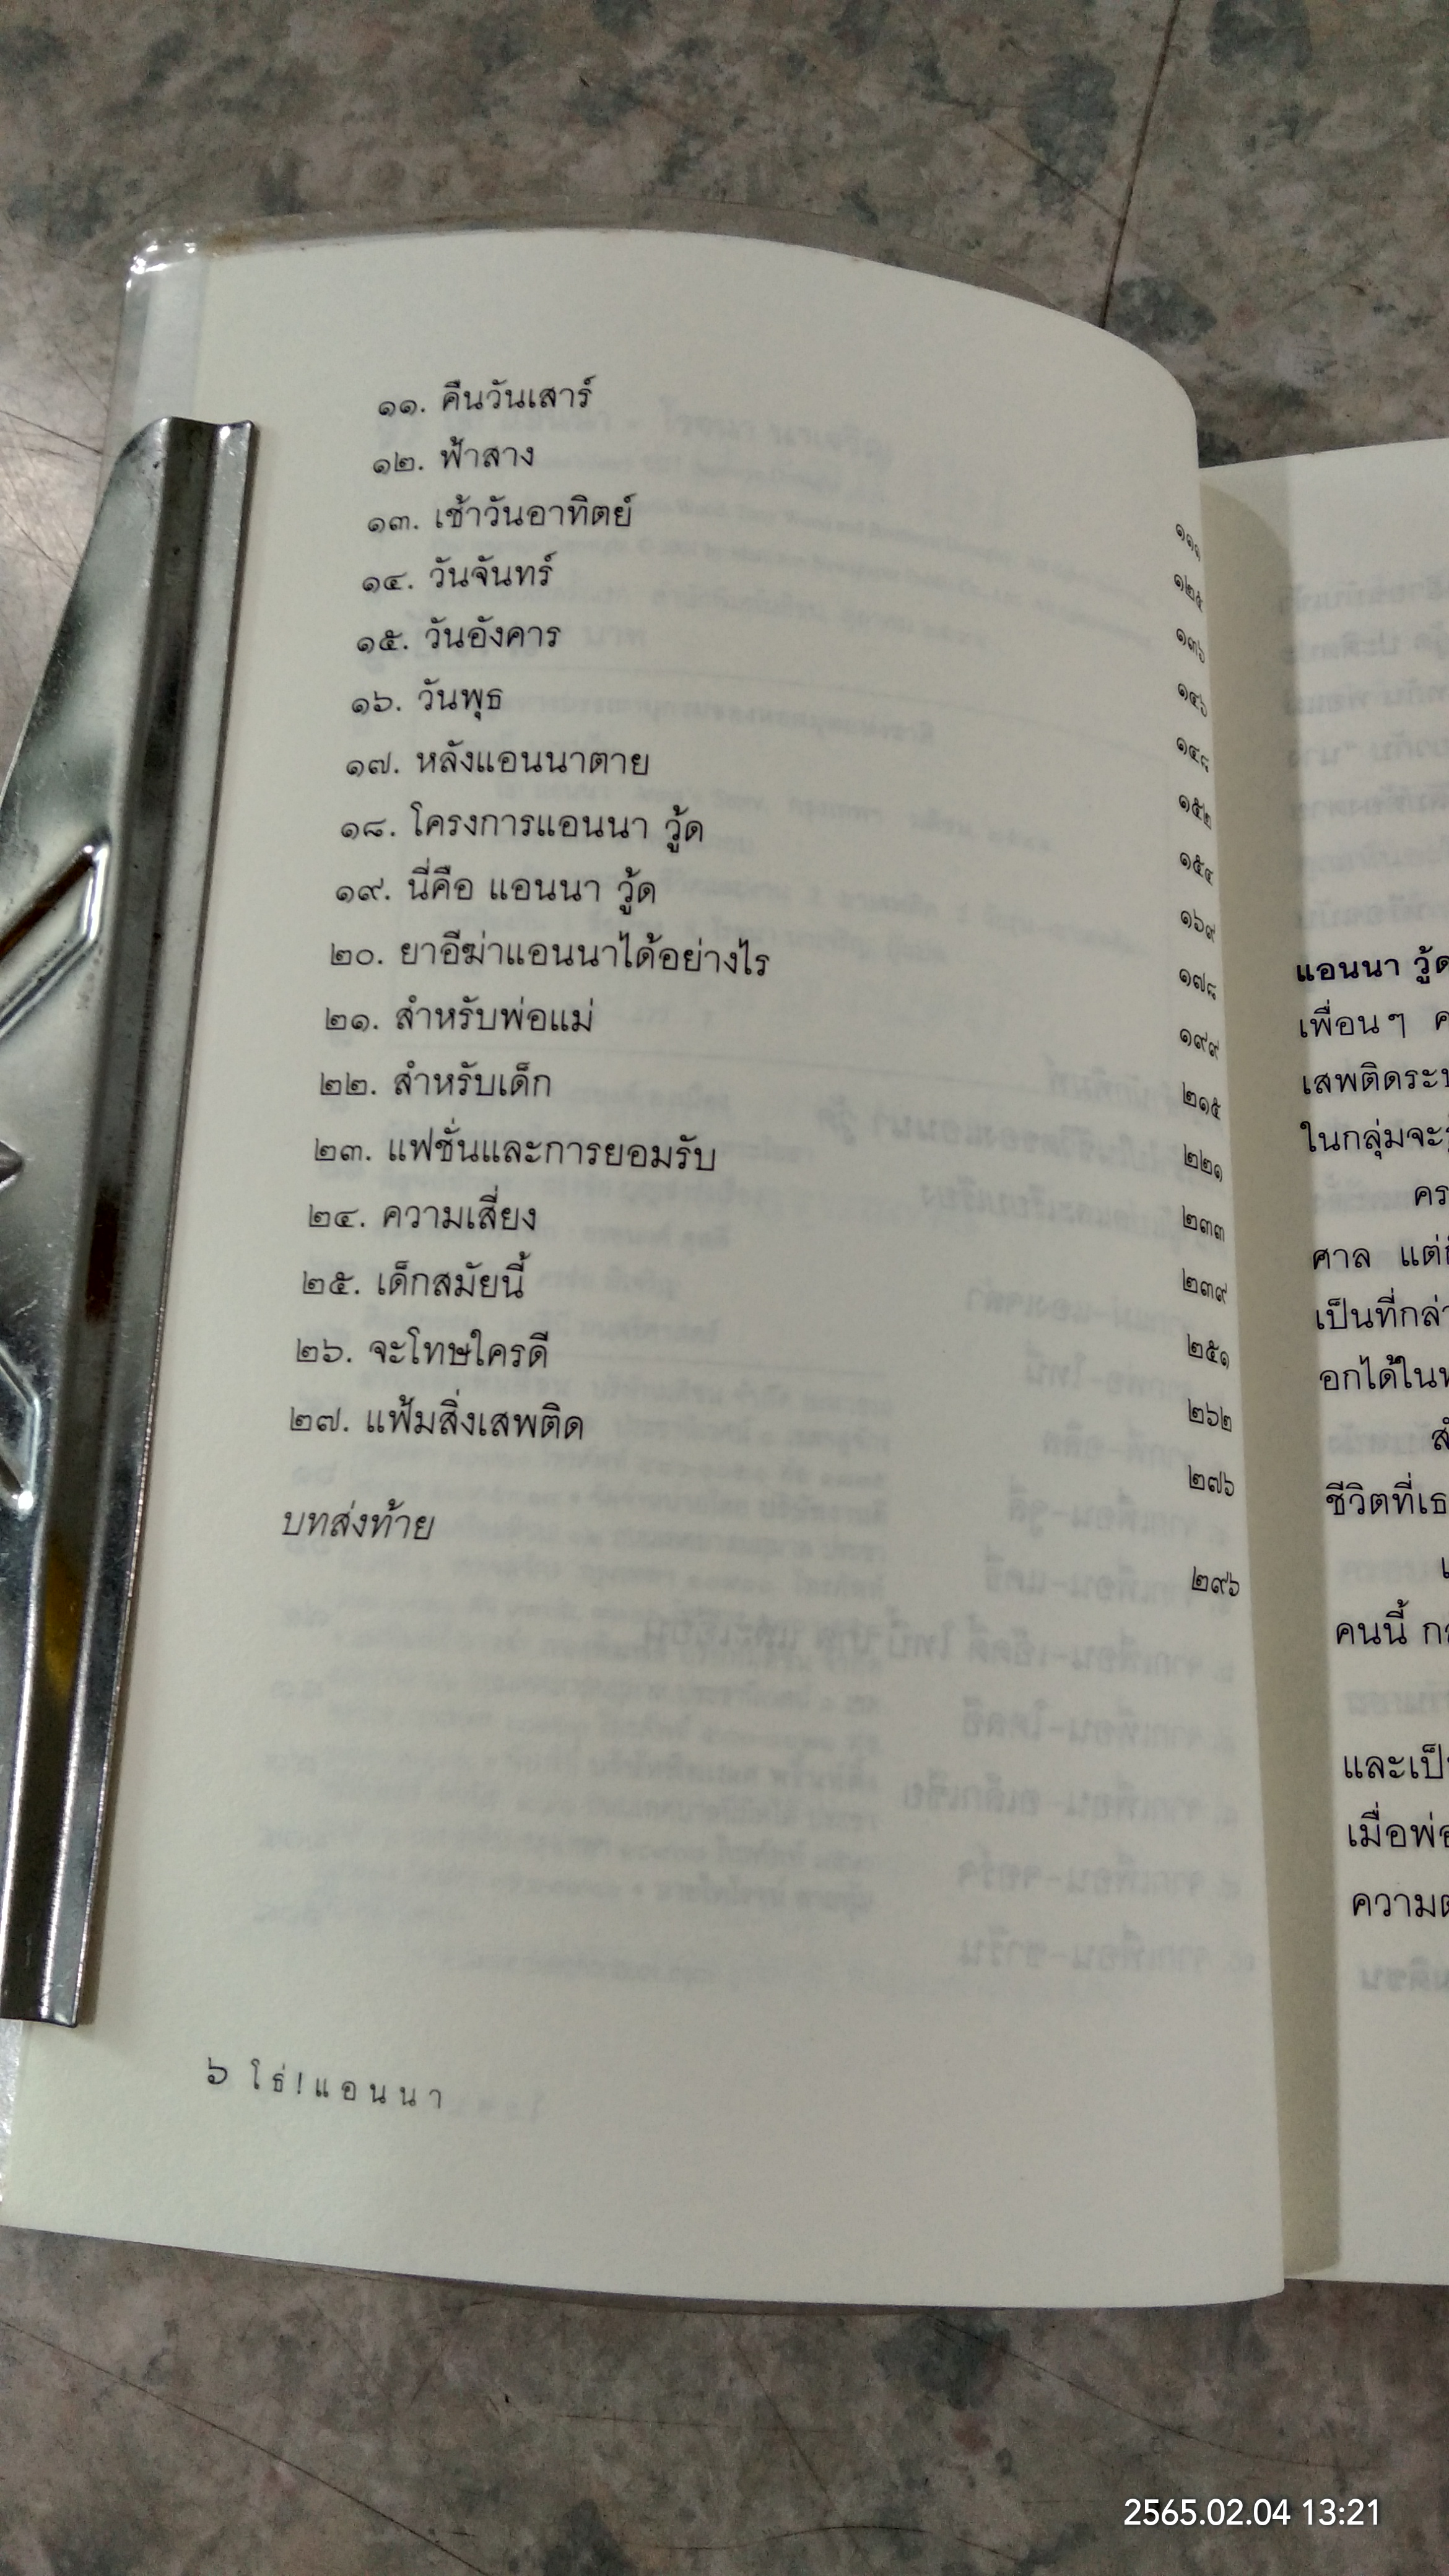 ๑๑. คืนวันเสาร์ ๑๑๑
๑๒. ฟ้าสาง ๑๒๕
๑๓. เช้าวันอาทิตย์ ๑๓๖
๑๔. วันจันทร์ ๑๔๖
๑๕. วันอังคาร ๑๔๘
๑๖. วันพุธ ๑๕๒
๑๗. หลังแอนนาตาย ๑๕๔
๑๘. โครงการแอนนา วู้ด ๑๖๙
๑๙. นี่คือ แอนนา วู้ด ๑๗๘
๒๐. ยาอีฆ่าแอนนาได้อย่างไร ๑๙๙
๒๑. สำหรับพ่อแม่ ๒๑๕
๒๒. สำหรับเด็ก ๒๒๑
๒๓. แฟชั่นและการยอมรับ ๒๓๓
๒๔. ความเสี่ยง ๒๓๙
๒๕. เด็กสมัยนี้ ๒๕๑
๒๖. จะโทษใครดี ๒๖๒
๒๗. แฟ้มสิ่งเสพติด ๒๗๖
บทส่งท้าย ๒๙๖
๖ โธ่!แอนนา
แอนนา วู้ด
เพื่อนๆ
เสพติดระ
ในกลุ่มจะ
คร
ศาล แต่
เป็นที่กล่า
อกได้ใน
ชีวิตที่เธ
คนนี้
และเป็
เมื่อพ่อ
ความ
2565.02.04 13:21